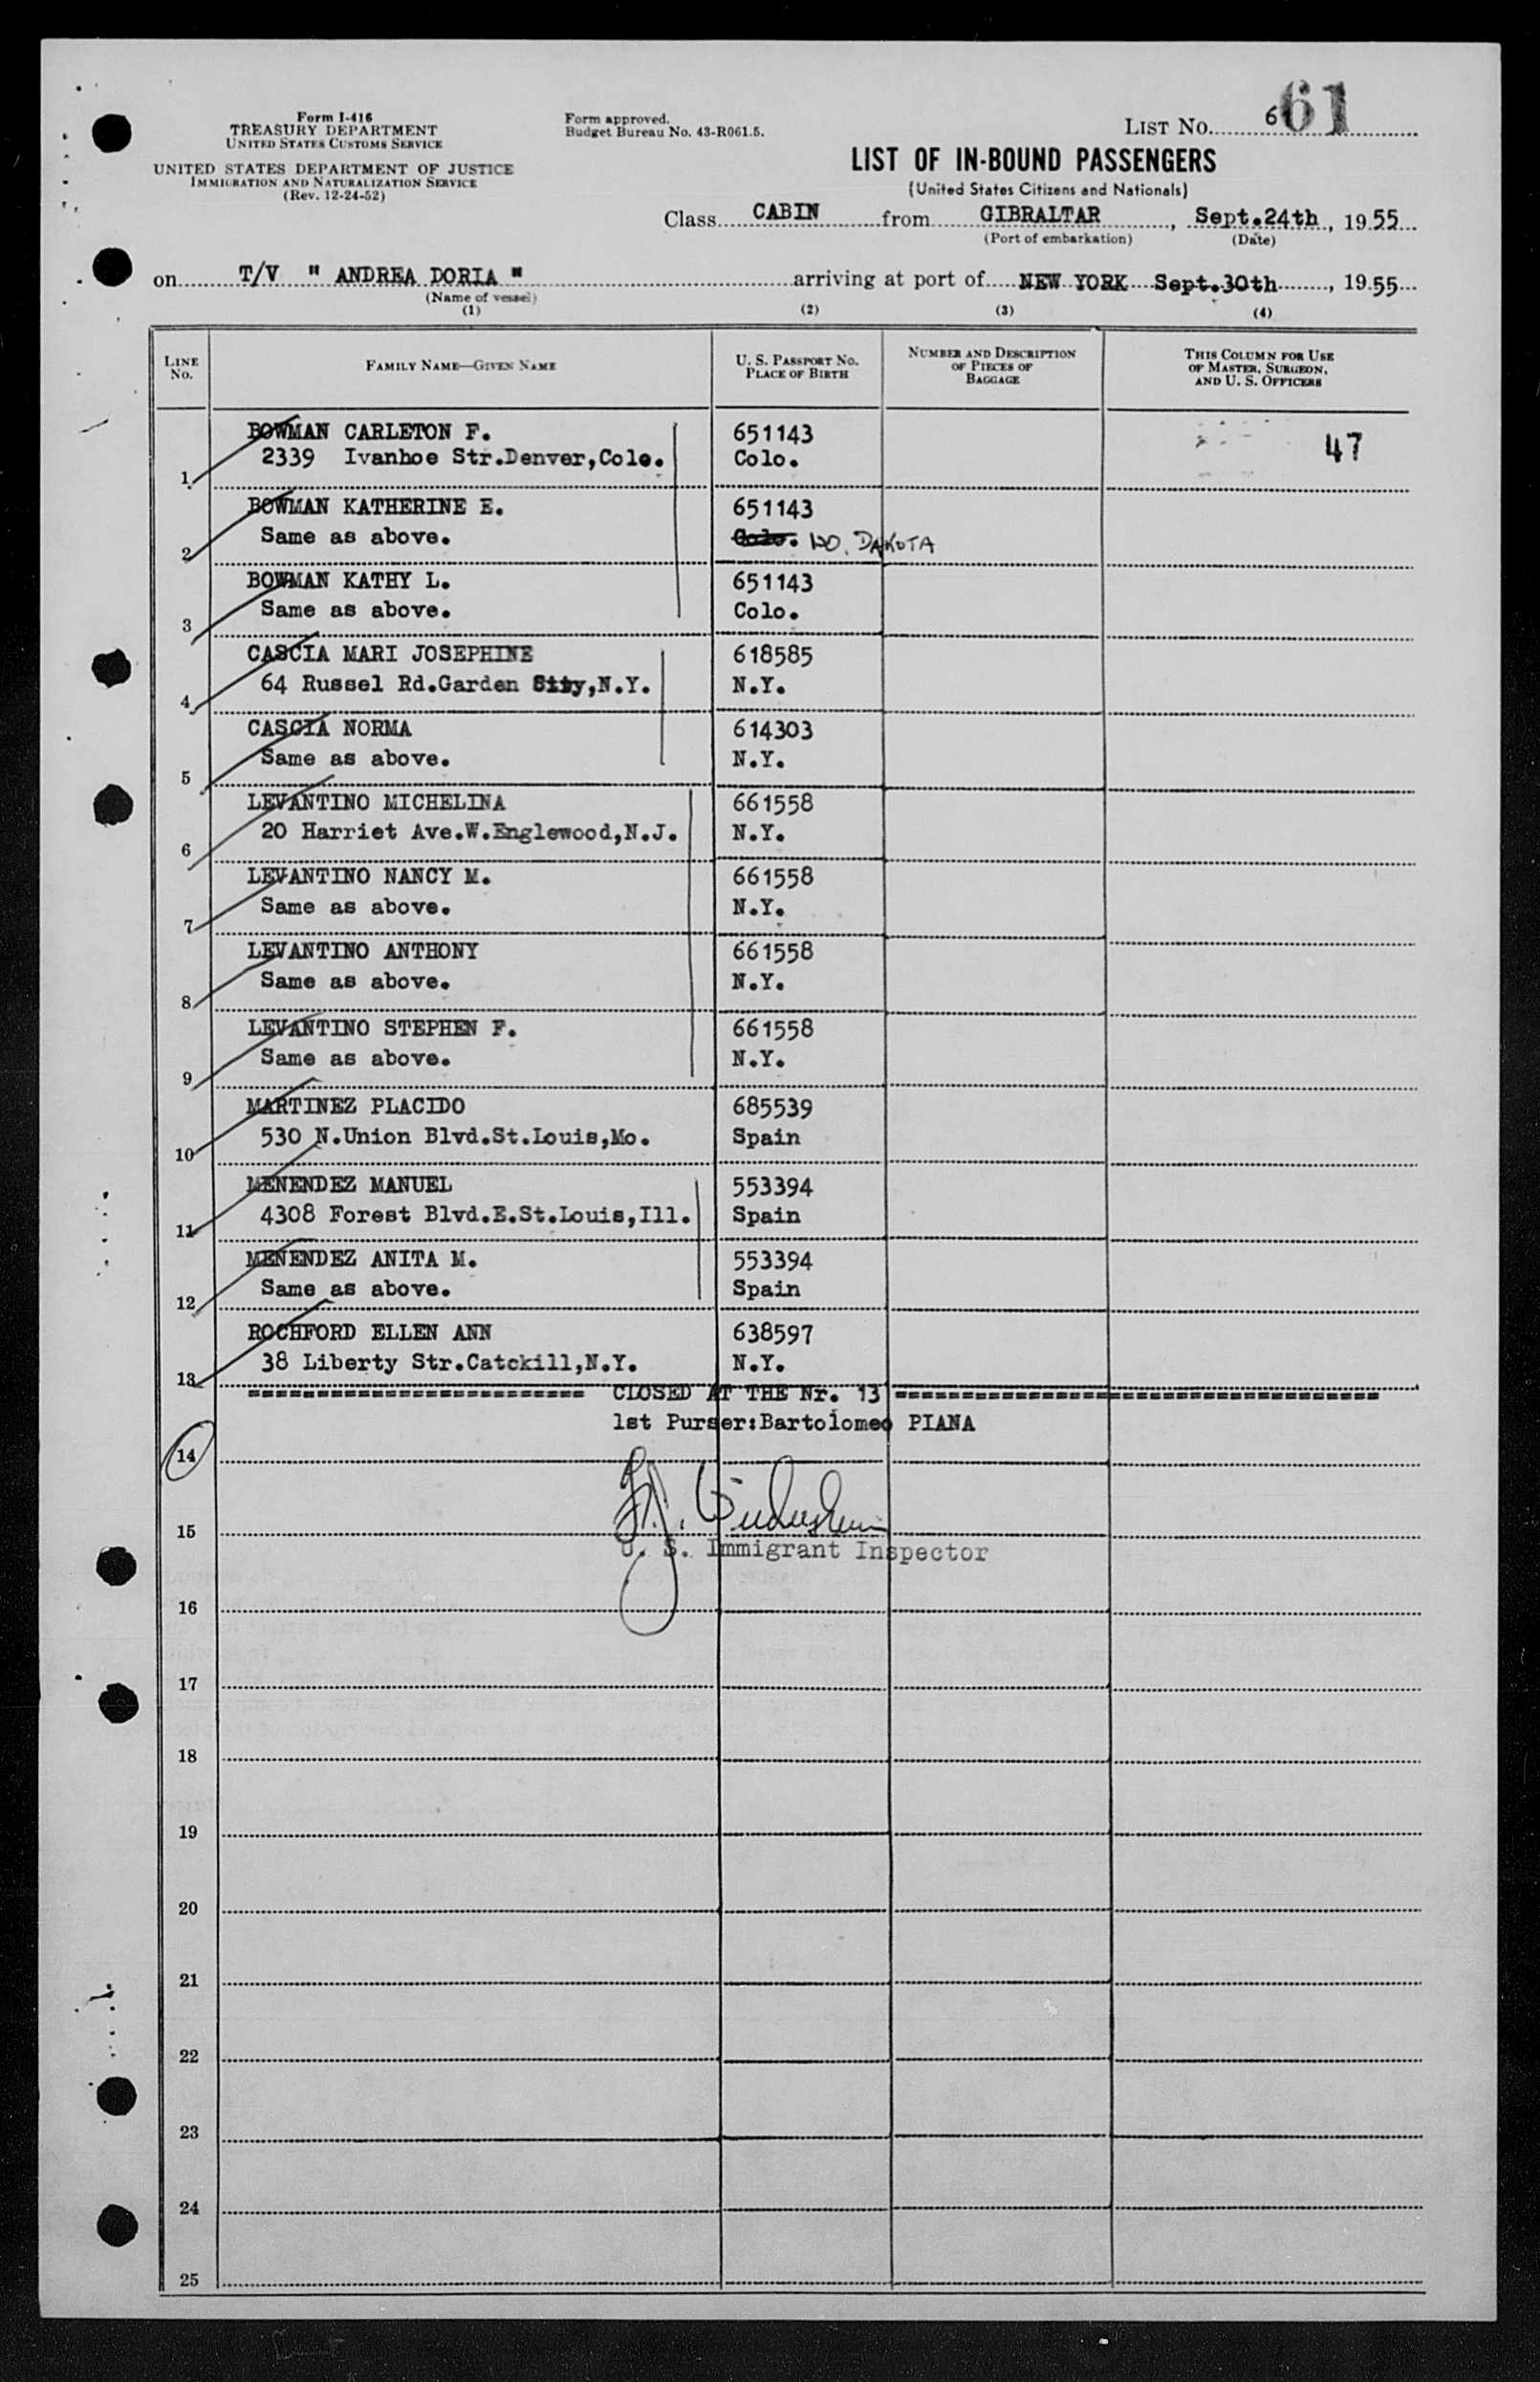 Form I-416
TREASURY DEPARTMENT
UNITED STATES CUSTOMS SERVICE
UNITED STATES DEPARTMENT OF JUSTICE
IMMIGRATION AND NATURALIZATION SERVICE
(Rev. 12-24-52)
Form approved.
Budget Bureau No. 43-R061.5.
LIST No. 6 61
LIST OF IN-BOUND PASSENGERS
(United States Citizens and Nationals)
Class CABIN from GIBRALTAR, Sept.24th, 1955
(Port of embarkation) (Date)
on T/V " ANDREA DORIA " arriving at port of NEW YORK Sept.30th, 1955
(Name of vessel)
(1) (2) (3) (4)
LINE No. FAMILY NAME—GIVEN NAME U. S. PASSPORT NO. PLACE OF BIRTH NUMBER AND DESCRIPTION OF PIECES OF BAGGAGE THIS COLUMN FOR USE OF MASTER, SURGEON, AND U. S. OFFICERS
BOWMAN CARLETON F. 651143 47
1 2339 Ivanhoe Str.Denver,Colo. Colo.
BOWMAN KATHERINE E. 651143
2 Same as above. Colo. NO. DAKOTA
BOWMAN KATHY L. 651143
3 Same as above. Colo.
CASCIA MARI JOSEPHINE 618585
4 64 Russel Rd.Garden City,N.Y. N.Y.
CASCIA NORMA 614303
5 Same as above. N.Y.
LEVANTINO MICHELINA 661558
6 20 Harriet Ave.W.Englewood,N.J. N.Y.
LEVANTINO NANCY M. 661558
7 Same as above. N.Y.
LEVANTINO ANTHONY 661558
8 Same as above. N.Y.
LEVANTINO STEPHEN F. 661558
9 Same as above. N.Y.
MARTINEZ PLACIDO 685539
10 530 N.Union Blvd.St.Louis,Mo. Spain
MENENDEZ MANUEL 553394
11 4308 Forest Blvd.E.St.Louis,Ill. Spain
MENENDEZ ANITA M. 553394
12 Same as above. Spain
ROCHFORD ELLEN ANN 638597
13 38 Liberty Str.Catckill,N.Y. N.Y.
======================== CLOSED AT THE Nr. 13 ===================================
1st Purser:Bartolomeo PIANA
14
15
U. S. Immigrant Inspector
16
17
18
19
20
21
22
23
24
25